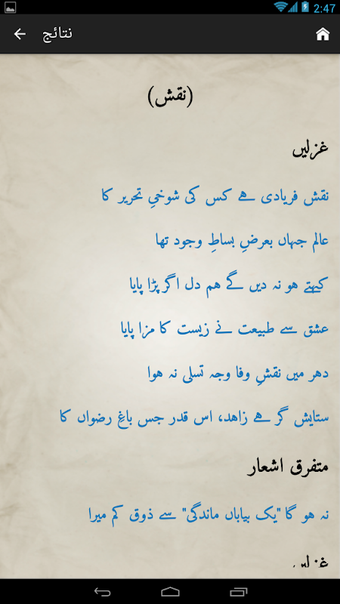 2:47
نتائج
(نقش)
غزلیں
نقش فریادی ہے کس کی شوخیِ تحریر کا
عالم جہاں بعرضِ بساطِ وجود تھا
کہتے ہو نہ دیں گے ہم دل اگر پڑا پایا
عشق سے طبیعت نے زیست کا مزا پایا
دہر میں نقشِ وفا وجہ تسلی نہ ہوا
ستایش گر ہے زاہد، اس قدر جس باغِ رضواں کا
متفرق اشعار
نہ ہو گا "یک بیاباں ماندگی" سے ذوق کم میرا